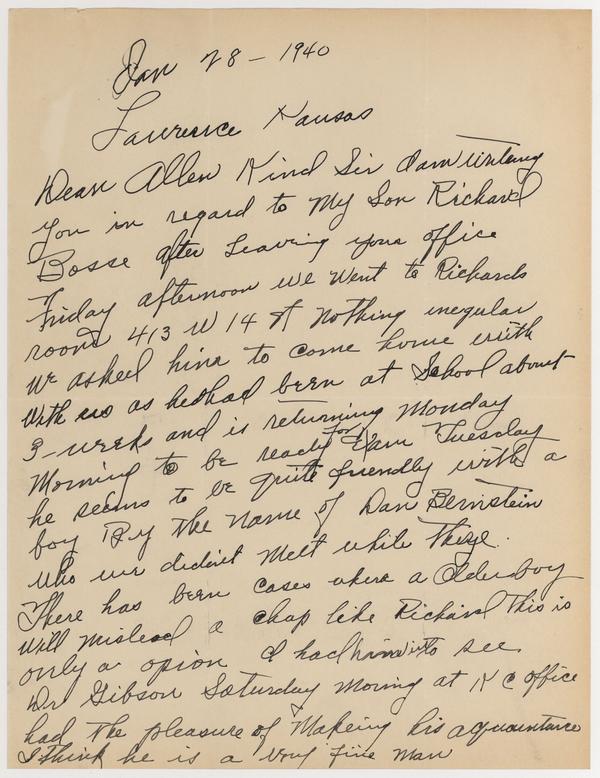 Jan 28 - 1940
Lawrence Kansas
Dean Allen Kind Sir I am writing
you in regard to My Son Richard
Bosse after Leaving your office
Friday afternoon we went to Richards
room 413 W 14 St nothing iregular
we asked him to come home with
with us as he had been at School about
3-weeks and is returning Monday
Morning to be ready for Exam Tuesday
he seems to be quite friendly with a
boy By the name of Dan Bernstein
who we didint Meet while there.
There has been cases where a Older boy
will mislead a chap like Richard This is
only a opion I had him in to see
Dr Gibson Saturday Moring at K C office
had the pleasure of Makeing his aquaintance
I think he is a very fine man